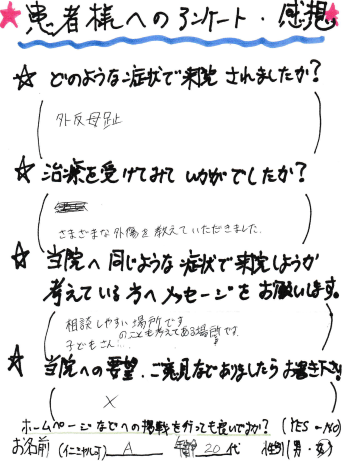 患者様へのアンケート・感想
☆ どのような症状で来院されましたか?
外反母趾
☆ 治療を受けてみていかがでしたか?
さまざまな外傷を教えていただきました.
☆ 当院へ同じような症状で来院しようか
考えている方へメッセージをお願いします。
相談しやすい場所です
子どもさん... のことも考えてある場所です.
★ 当院への要望、ご意見などありましたらお書き下さい
×
ホームページなどへの掲載を行っても良いですか? (YES - NO)
お名前 (イニシャル可) A 年齢 20代 性別 (男・女)